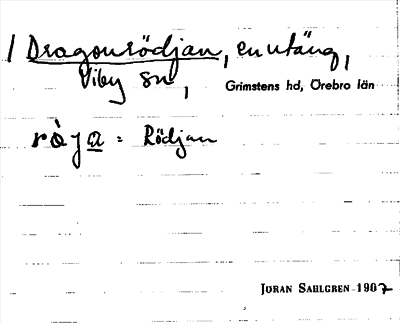 1 Dragonrödjan, en utäng,
Viby sn, Grimstens hd, Örebro län
rò̀ja = Rödjan
JÖRAN SAHLGREN 1907